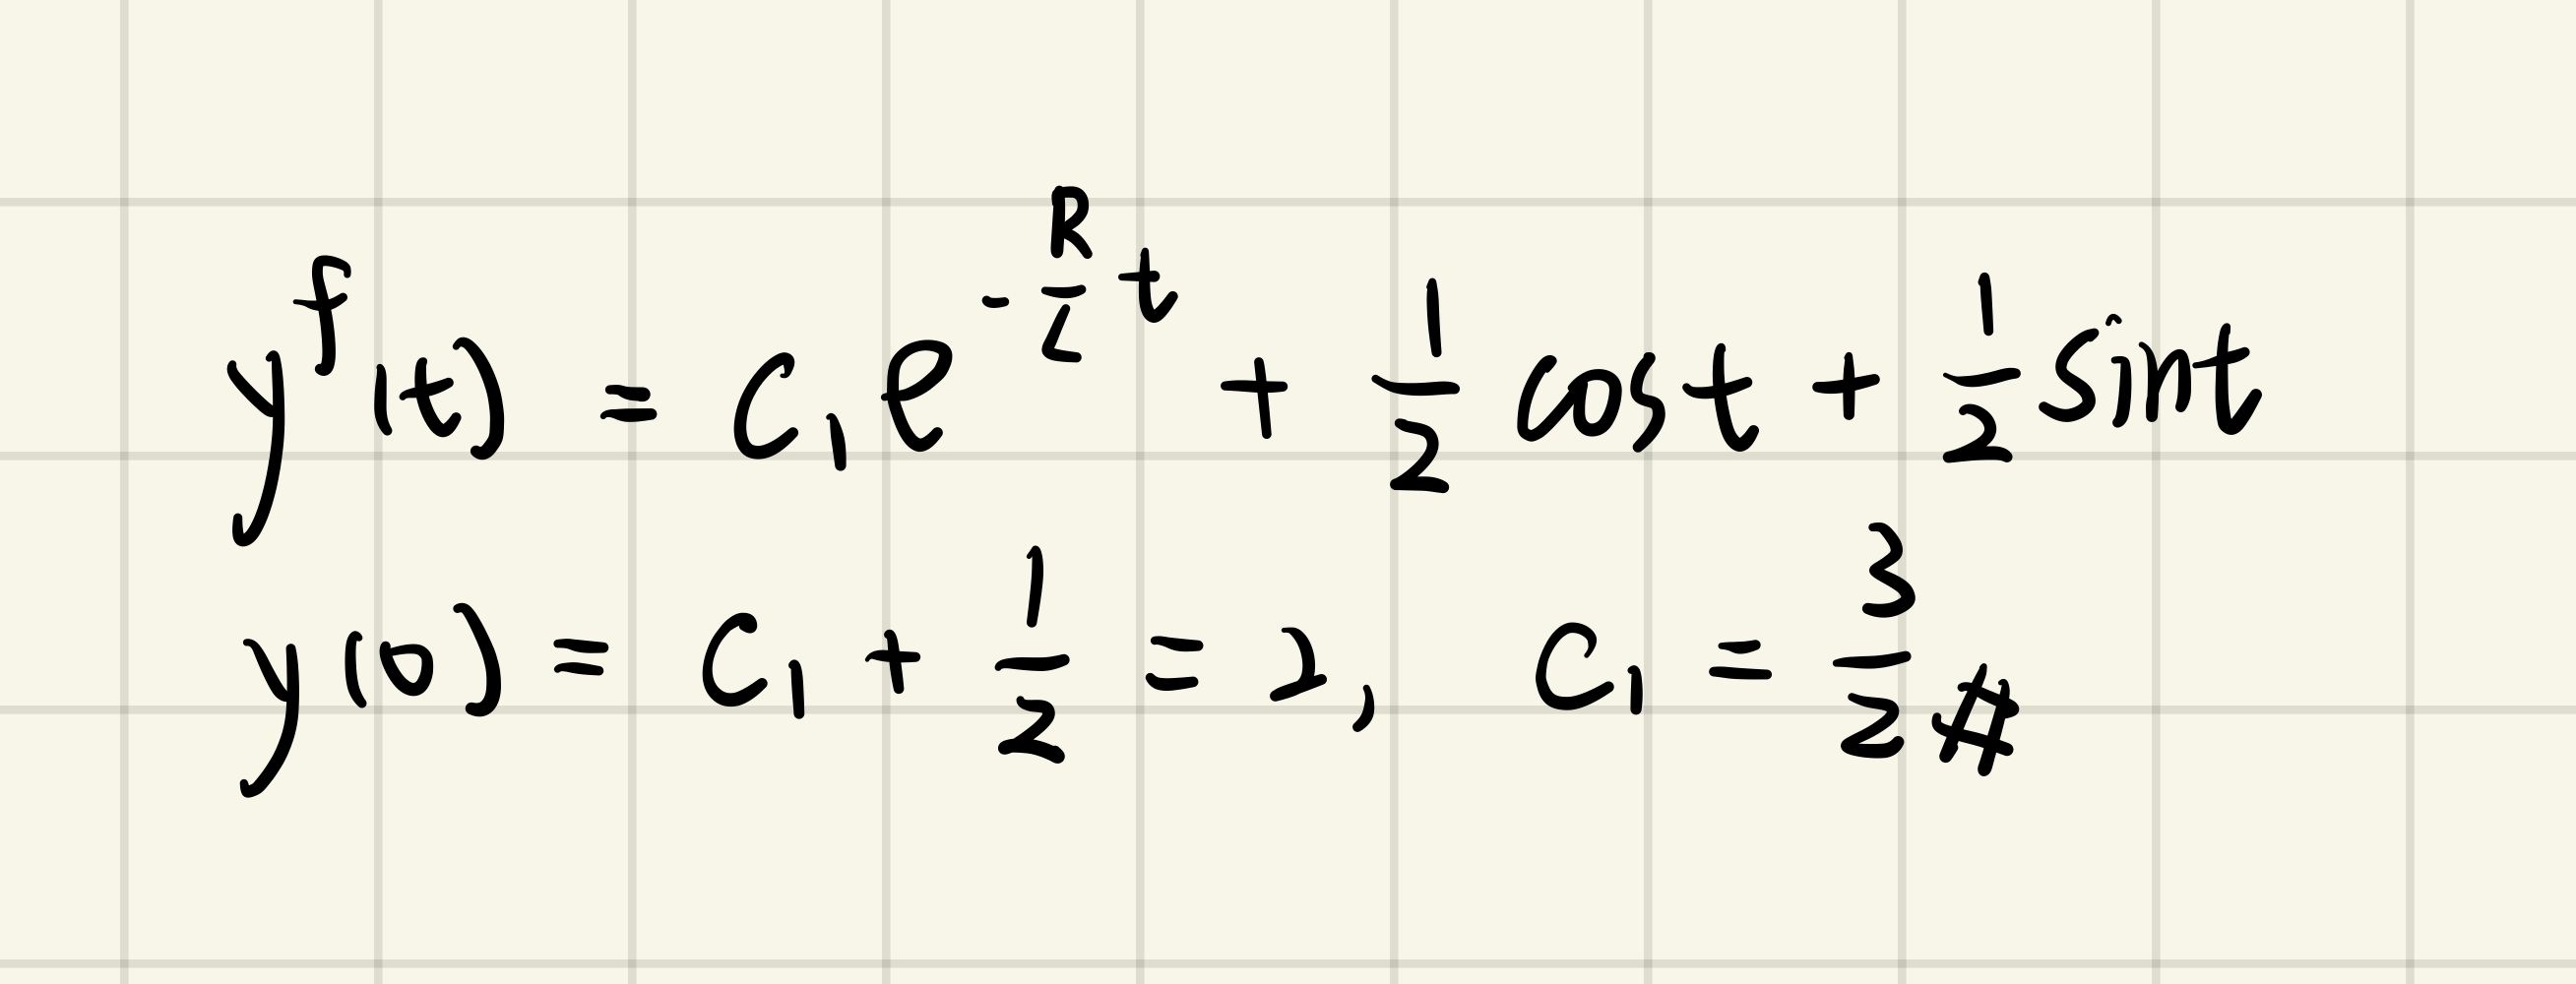 y^f(t) = C₁e^(-R/L t) + 1/2 cos t + 1/2 sin t
y(0) = C₁ + 1/2 = 2, C₁ = 3/2 #